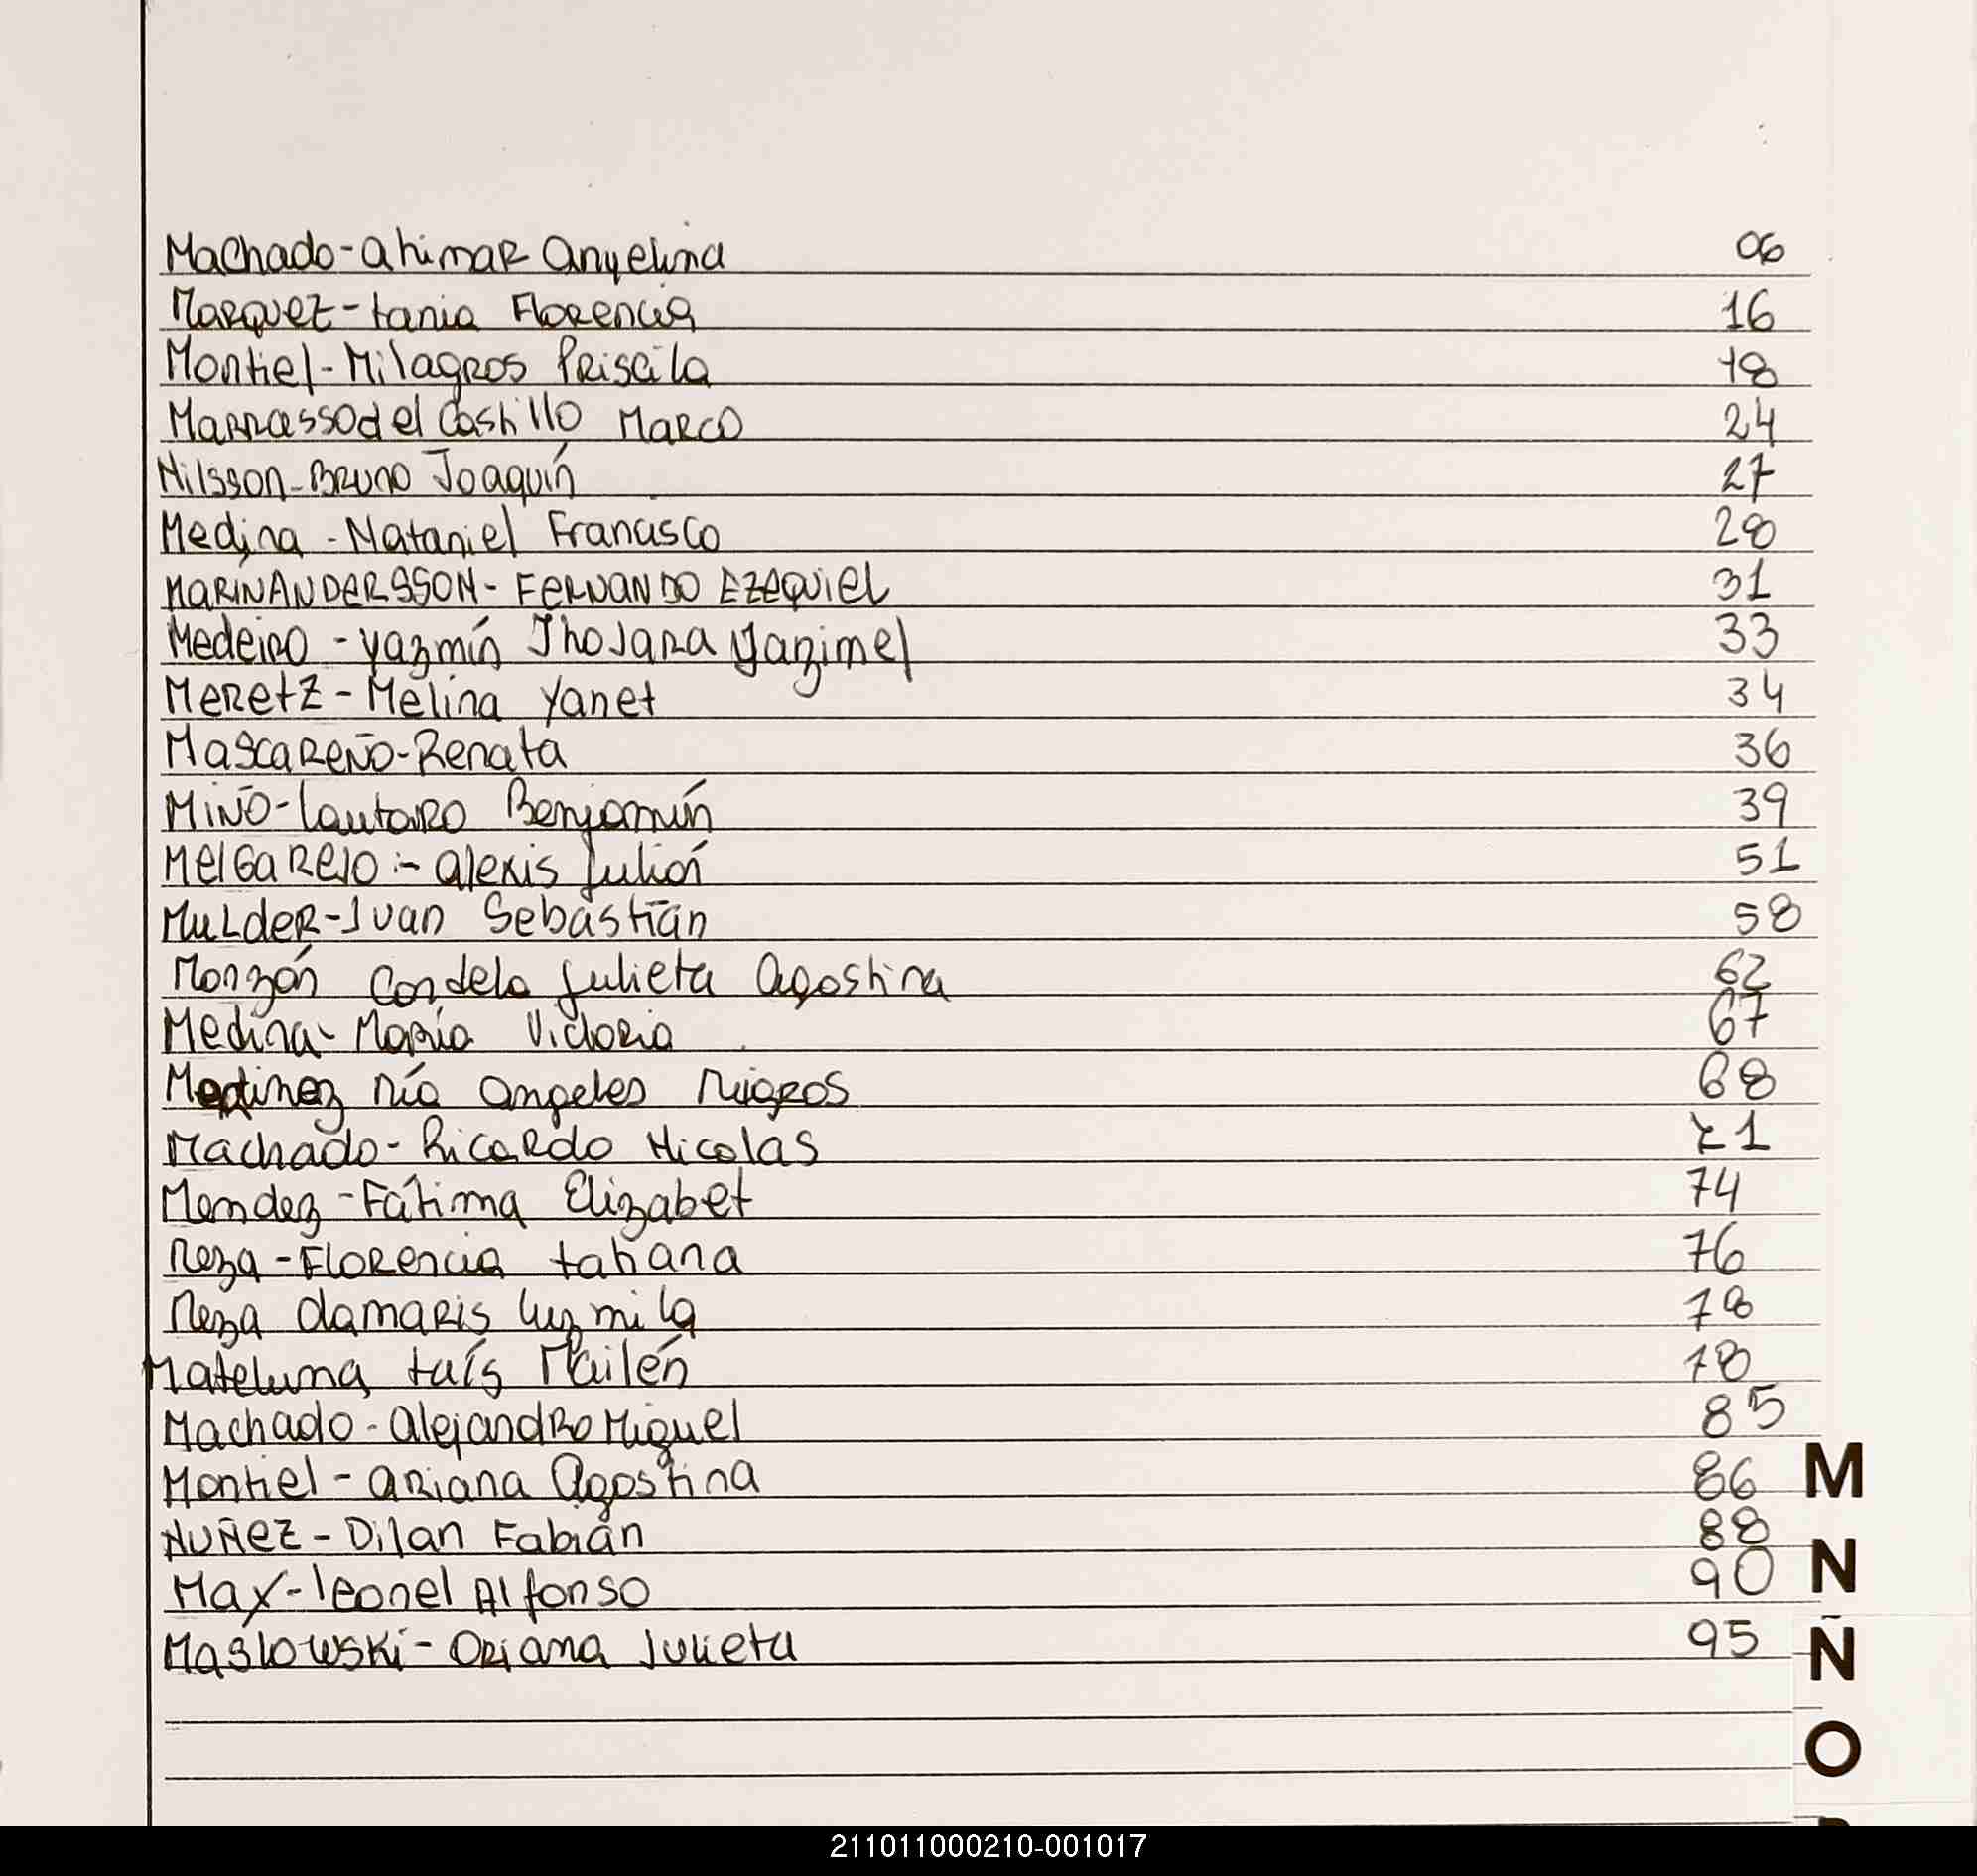 Machado-ahimar anyelina 06
Marquez-tania Florencia 16
Montiel-Milagros Priscila 18
Marrasso del Castillo Marco 24
Nilsson-Bruno Joaquín 27
Medina-Nataniel Francisco 28
MARÍN ANDERSSON-FERNANDO EZEQUIEL 31
Medeiro-yazmín Jhojara yazimel 33
Meretz-Melina Yanet 34
Mascareño-Renata 36
Miño-lautaro Benjamín 39
Melgarejo:-alexis Julián 51
Mulder-Juan Sebastián 58
Monzón Candela Julieta agostina 62
Medina-María Victoria 67
Mía angeles 68
Machado-Ricardo Nicolás 71
Mendez-Fátima Elizabet 74
Meza-Florencia tatiana 76
Meza damaris luzmila 78
Mateluna taís Mailén 78
Machado-alejandro Miguel 85
Montiel-ariana agostina 86
NUÑEZ-Dilan Fabián 88
Max-leonel Alfonso 90
Maslowski-Oriana Julieta 95
M
N
Ñ
O
211011000210-001017